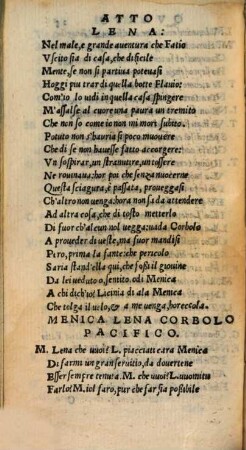 ATTO
LENA:
Nel male, e grande auentura che Fatio
Vscito sia di casa, che dificile
Mente, se non si partiua poteuasi
Hoggi piu trar di quella botte Flauio:
Com'io lo uidi in quella casa spingere
M'assalse al cuore una paura un tremito
Che non so come io non mi mori subito.
Potuto non s'hauria si poco muouere
Che di se non hauesse fatto accorgere:
Vn sospirar, un stranutire, un tossere
Ne rouinaua: hor poi che senza nuocerne
Questa sciagura, è passata, proueggasi,
Ch'altro non uenga: hora non sa da attendere
Ad altra cosa, che di tosto metterlo
Di fuor ch'alcun nol uegga: uada Corbolo
A proueder di ueste, ma fuor mandisi
Piro, prima la fante: che pericolo
Saria stand'ella qui, che fosse il giouine
Da lei ueduto, sentito. odi Menica
A chi dich'io? Licinia di ala Menica
Che tolga il uelo, & a me uenga, horectola.
MENICA LENA CORBOLO
PACIFICO.
M. Lena che uuoi? L. piacciati cara Menica
Di farmi un gran seruitio, da douertene
Esser sempre tenuta. M. che uuoi? L. uuomitu
Farlo? M. io'l faro, pur che far sia possibile